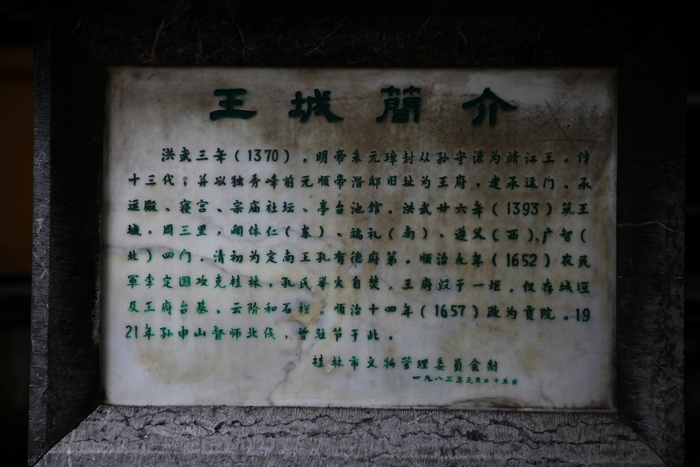 王城简介
洪武三年(1370)，明帝朱元璋封从孙守谦为靖江王，传
十三代；并以独秀峰前元顺帝潜邸旧址为王府，建承运门、承
运殿、寝宫、宗庙社坛、亭台池馆。洪武廿六年(1393)筑王
城，周三里，闢体仁(东)、端礼(南)、遵义(西)、广智(
北)四门，清初为定南王孔有德府第。顺治九年(1652)农民
軍李定国攻克桂林，孔氏举火自焚，王府毁于一炬，仅存城垣
及王府台基、云阶和石栏。顺治十四年(1657)改为贡院。19
21年孙中山督师北伐，曾驻节于此。
桂林市文物管理委员会制
一九八三年元月二十五日